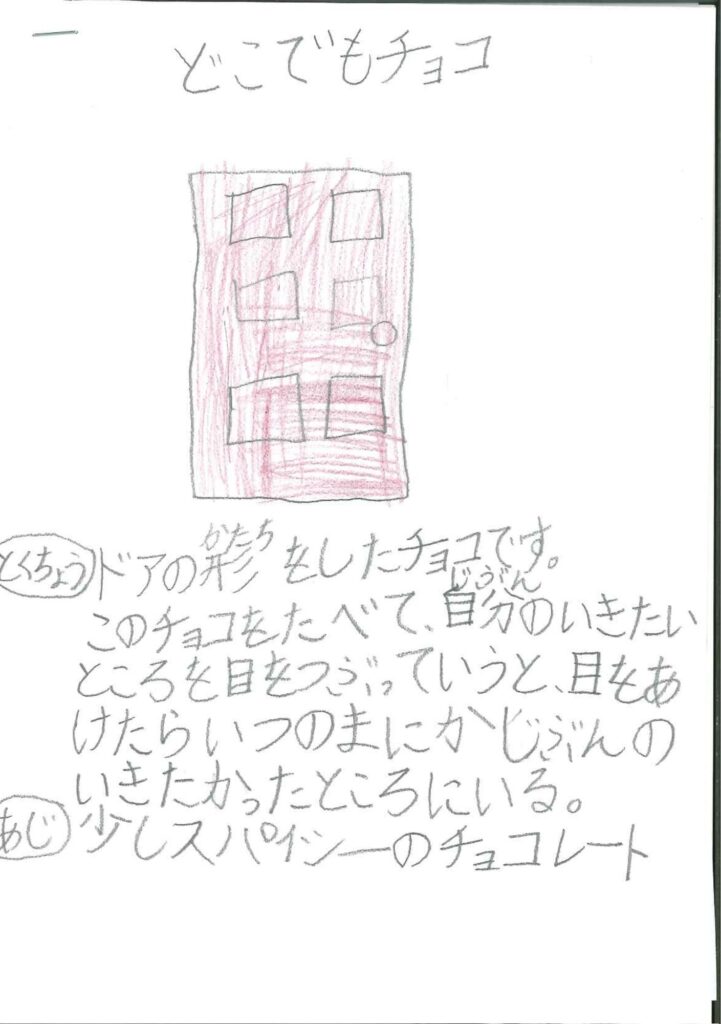 どこでもチョコ
とくちょう ドアの形をしたチョコです。
かたち
じぶん
このチョコをたべて、自分のいきたい
ところを目をつぶっていうと、目をあ
けたらいつのまにかじぶんの
いきたかったところにいる。
あじ 少しスパイシーのチョコレート